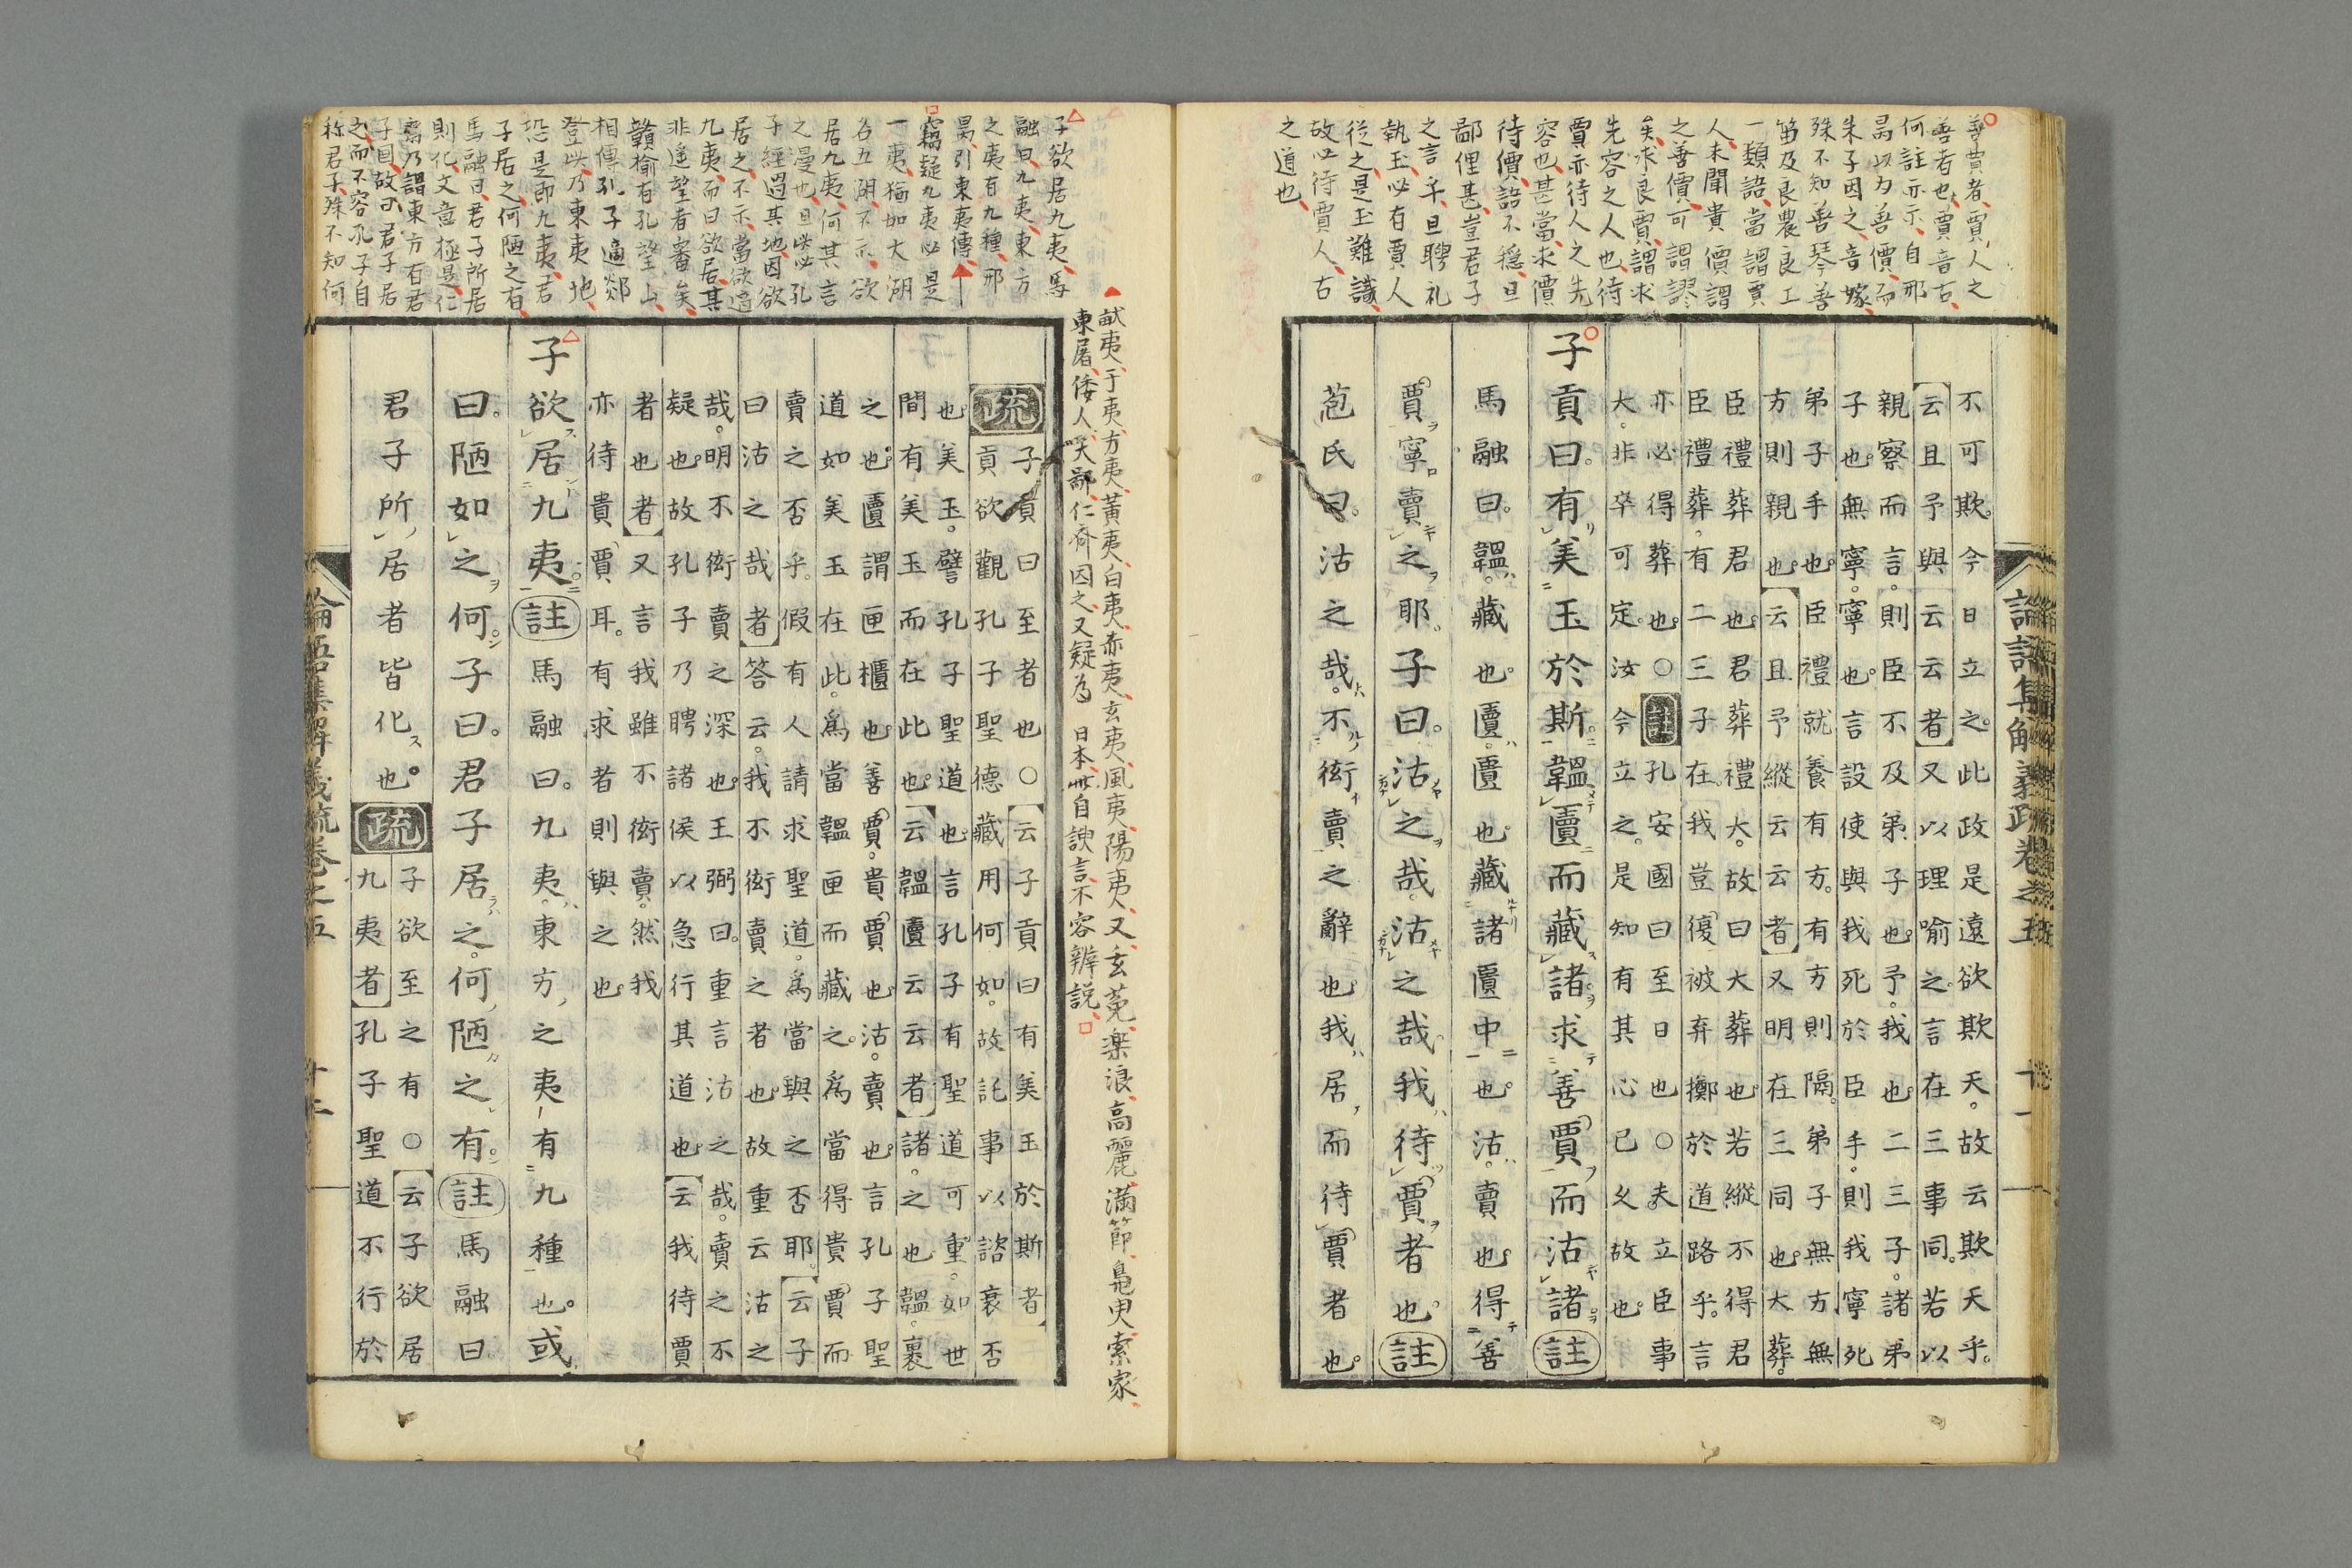 善賈者、賈人之
善者也、賈音古、
何註亦示、自邢
朱子因之、音嫁、
殊不知善琴善
笛及良農良工
一類語、當謂賈
人、未聞貴價謂
之善價、可謂謬
矣、求良賈、謂求
先容之人也、待
賈亦待人之先
容也、甚當、求價
待價、語不穩、且
鄙俚甚、豈君子
之言乎、且聘礼
執玉、必有賈人
從之、是玉難識
故必待賈人、古
之道也、
論語集解義疏卷之五
十一
不可欺。今日立之。此政是遠欲欺天。故云欺天乎。
云且予與云云者又以理喻之。言在三事同。若以
親察而言。則臣不及弟子也。予。我也。二三子。諸弟
子也。無寧。寧也。言設使與我死於臣手。則我寧死
弟子手也。臣禮就養有方。有方則隔。弟子無方無
方則親也。云且予縱云云者又明在三同也。大葬。
臣禮葬君也。君葬禮大。故曰大葬也。若縱不得君
臣禮葬。有二三子在。我豈復被弃擲於道路乎。言
亦必得葬也。○註孔安國曰至日也○夫立臣事
大。非卒可定。汝今立之。是知有其心已久故也。
子貢曰。有美玉於斯。韞匵而藏諸。求善賈而沽諸。註
馬融曰。韞。藏也。匵。匱也。藏諸匱中也。沽。賣也。得善
賈寧賣之耶。子曰。沽之哉。沽之哉。我待賈者也。註
苞氏曰。沽之哉。不衒賣之辭也。我居而待賈者也。
獻夷、于夷、方夷、黃夷、白夷、赤夷、玄夷、風夷、陽夷、又玄菟、楽浪、高麗、滿節、鳧臾、索家
東屠、倭人、天鄙、仁斎因之、又疑為日本、此自諛言、不容辨説、
子欲居九夷、馬
融曰、九夷、東方
之夷、有九種、邢
昺引東夷傳、
竊疑九夷必是
一夷、猶如大湖
名五湖、不示欲
居九夷、何其言
之漫也、且此必孔
子經過其地、因欲
居之、不示、當欲適
九夷、而曰欲居、其
非遥望者審矣、
贛榆有孔望山、
相傳孔子適郯
登此、乃東夷地、
恐是即九夷、君
子居之、何陋之有、
馬融曰、君子所居
則化、文意極是、仁
斎乃謂東方有君
子国、故曰君子居
之、而不容孔子自
称君子、殊不知何
疏子貢曰至者也○云子貢曰有美玉於斯者
貢欲觀孔子聖德藏用何如。故託事以諮衰否
也。美玉。譬孔子聖道也。言孔子有聖道可重。如世
間有美玉而在此也。云韞匵云云者諸。之也。韞。裹
之也。匵謂匣櫃也。善賈。貴賈也。沽。賣也。言孔子聖
道如美玉在此。爲當韞匣而藏之。爲當得貴賈而
賣之否乎。假有人請求聖道。爲當與之否耶。云子
曰沽之哉者答云。我不衒賣之者也。故重云沽之
哉。明不衒賣之深也。王弼曰。重言沽之哉。賣之不
疑也。故孔子乃聘諸侯以急行其道也。云我待賈
者也者又言我雖不衒賣。然我
亦待貴賈耳。有求者則與之也。
子欲居九夷。註馬融曰。九夷。東方之夷有九種也。或
曰。陋如之何。子曰。君子居之。何陋之有。註馬融曰
君子所居者皆化也。疏子欲至之有○云子欲居
九夷者孔子聖道不行於
論語集解義疏卷之五
十二